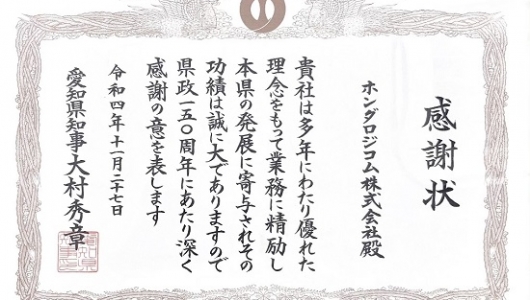 感謝状
ホンダロジコム株式会社殿
貴社は多年にわたり優れた
理念をもって業務に精励し
本県の発展に寄与されその
功績は誠に大でありますので
県政一五〇周年にあたり深く
感謝の意を表します
令和四年十一月二十七日
愛知県知事大村秀章